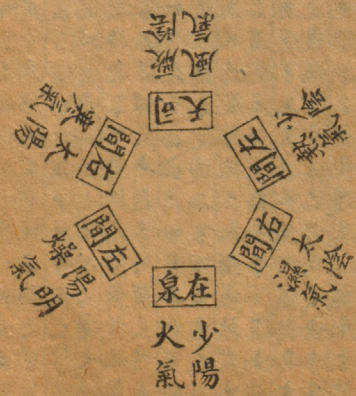 司天
厥陰
風氣
左間
少陰
熱氣
右間
太陰
濕氣
在泉
少陽
火氣
左間
陽明
燥氣
右間
太陽
寒氣